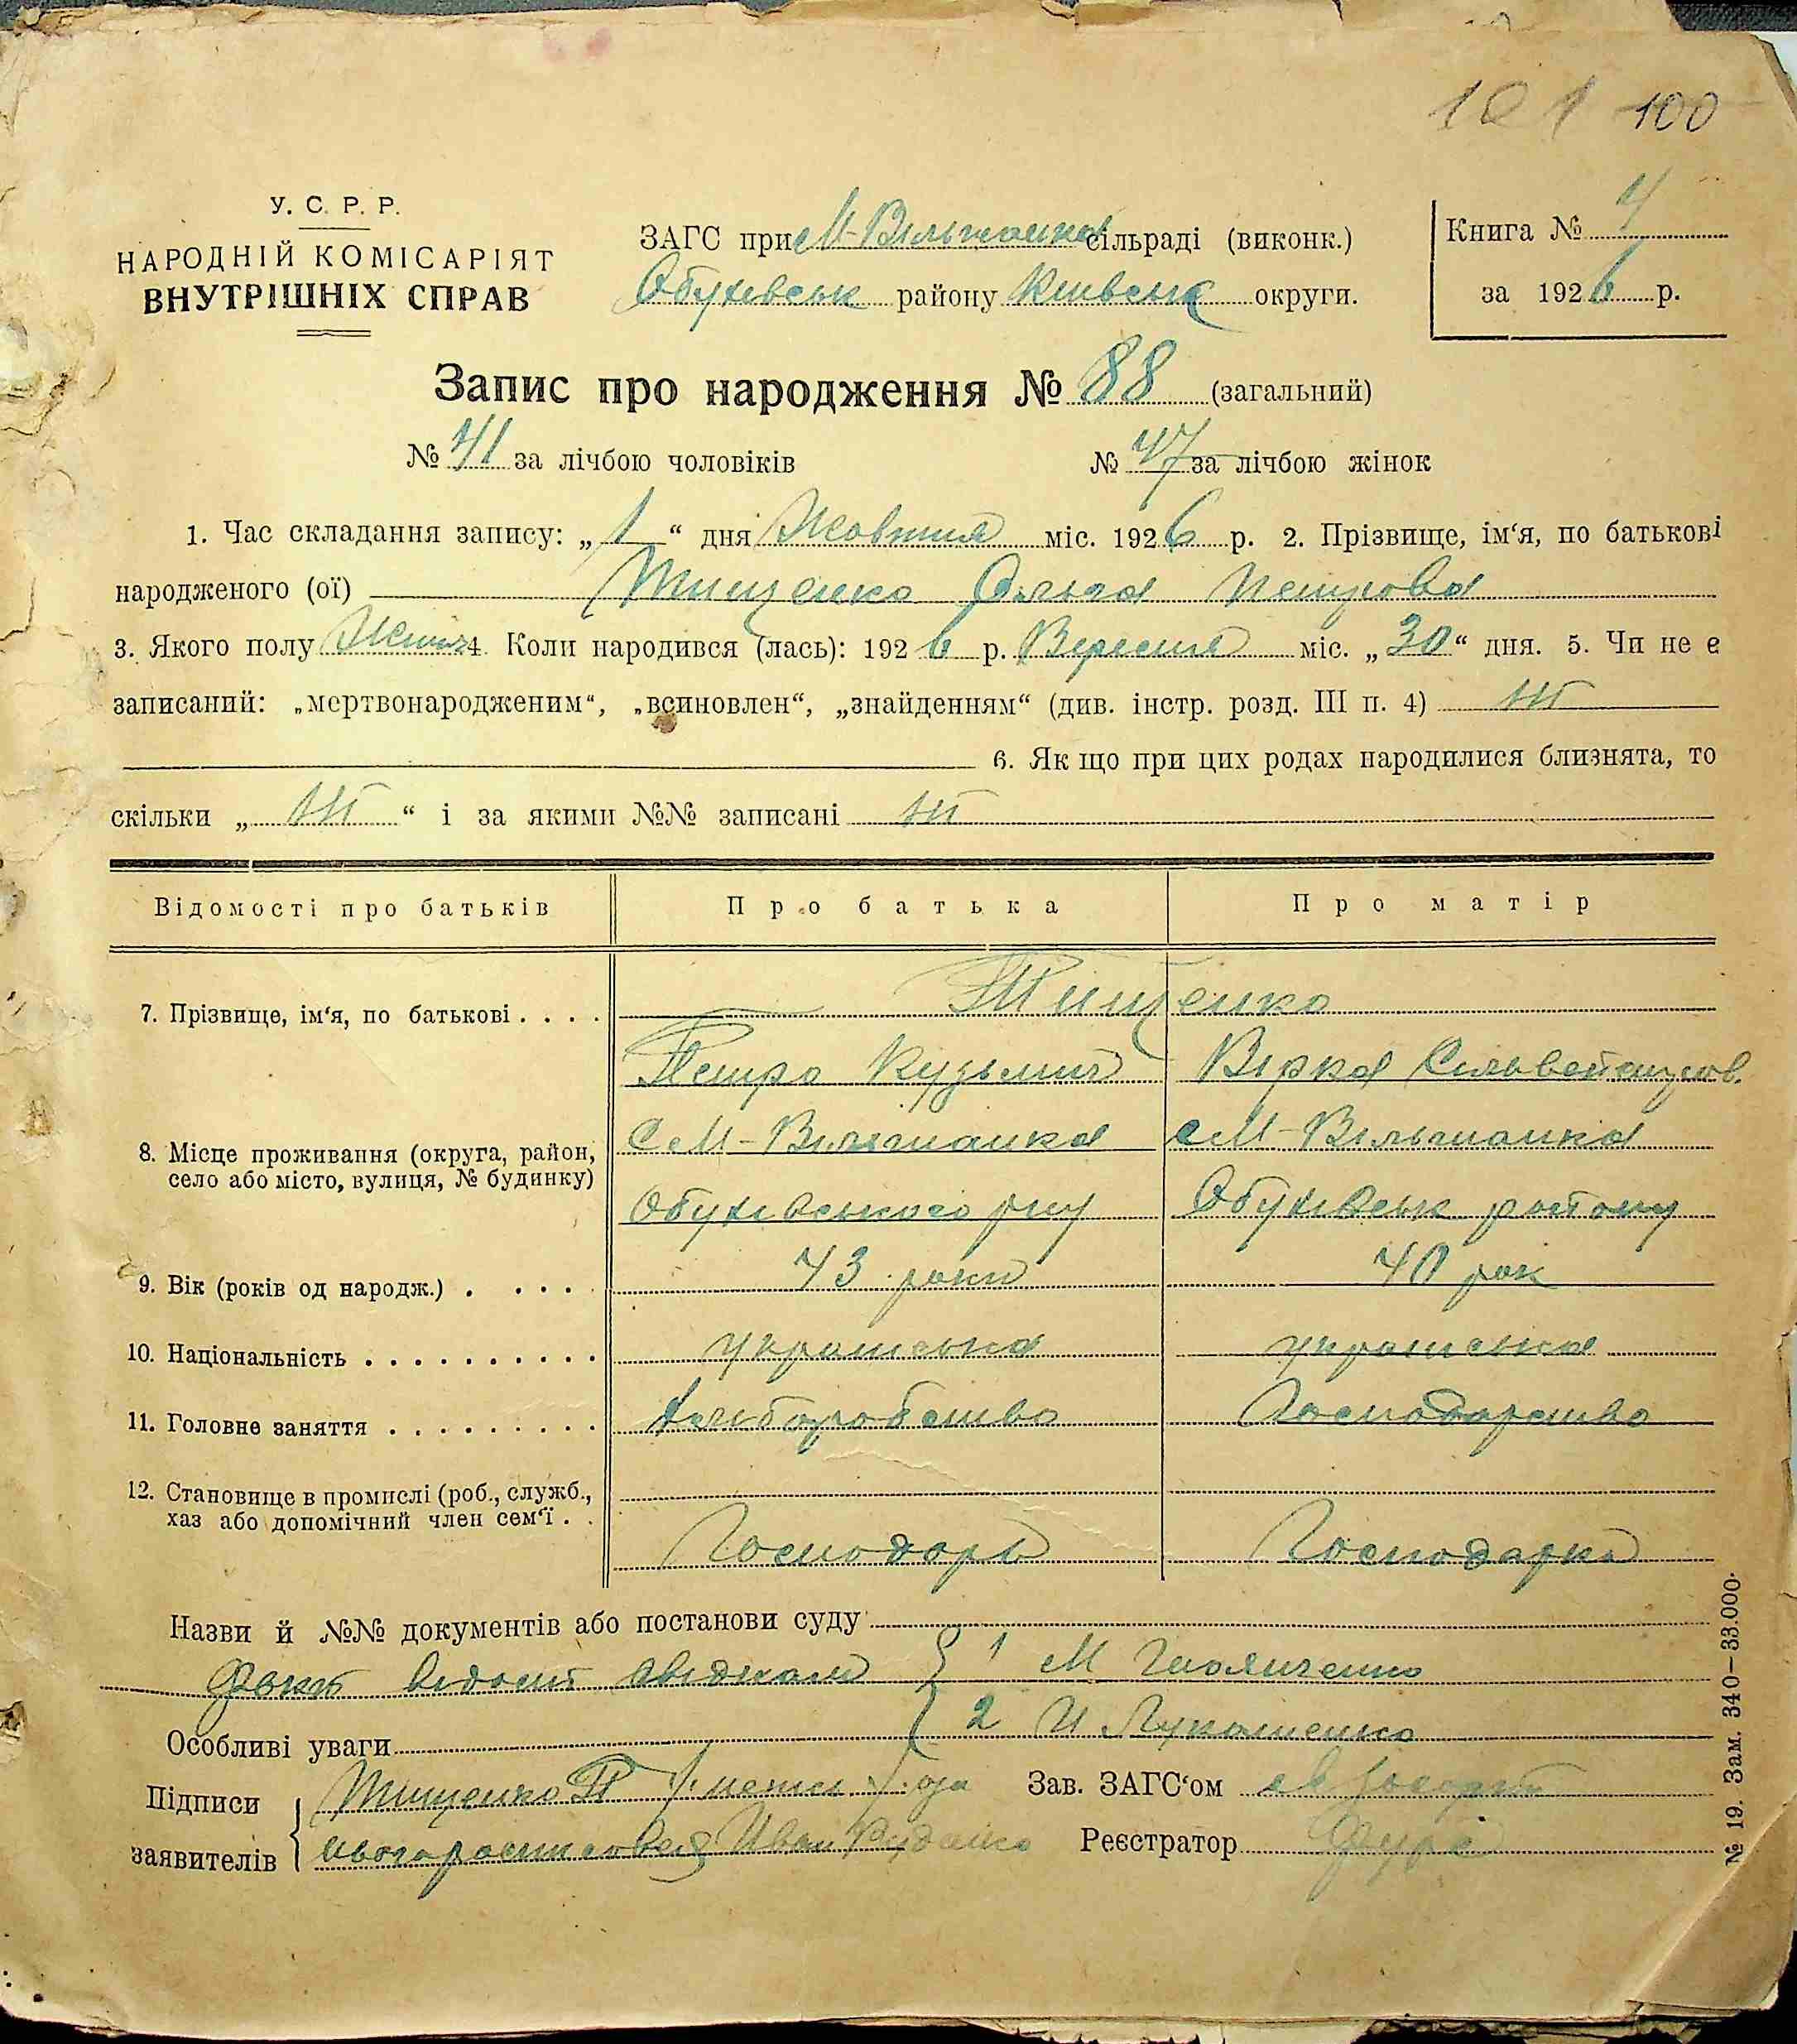 101 100
У. С. Р. Р.
НАРОДНІЙ КОМІСАРІЯТ
ВНУТРІШНІХ СПРАВ
ЗАГС при М-Вільшанка сільраді (виконк.)
Обухівськ району Київськ округи.
Книга № 4
за 1926 р.
Запис про народження № 88 (загальний)
№ 41 за лічбою чоловіків № 47 за лічбою жінок
1. Час складання запису: „1“ дня Жовтня міс. 1926 р. 2. Прізвище, ім‘я, по батькові
народженого (ої) Тищенко Ольга Петрова
3. Якого полу Жіноч 4. Коли народився (лась): 1926 р. Вересня міс. „30“ дня. 5. Чи не є
записаний: „мертвонародженим“, „всиновлен“, „знайденням“ (див. інстр. розд. III п. 4) ні
6. Як що при цих родах народилися близнята, то
скільки „ ні “ і за якими №№ записані ні
Відомості про батьків Про батька Про матір
7. Прізвище, ім‘я, по батькові . . . . Тищенко
Петро Кузьмич Вірка
8. Місце проживання (округа, район, село або місто, вулиця, № будинку)
С М-Вільшанка с М-Вільшанка
Обухівського р-ну Обухівськ району
9. Вік (років од народж.) . . . . . 43 роки 40 рок
10. Національність . . . . . . . . . . українська українська
11. Головне заняття . . . . . . . . . хліборобство Господарство
12. Становище в промислі (роб., служб.,
хаз або допомічний член сем‘ї . .
Господарь Господарка
Назви й №№ документів або постанови суду
Факт відомий свідкам { 1 М
2 И Лукашенко
Особливі уваги
Підписи заявителів { Тищенко П
Иван Руденко
Зав. ЗАГС‘ом
Реєстратор
№ 19. Зам. 340—33.000.